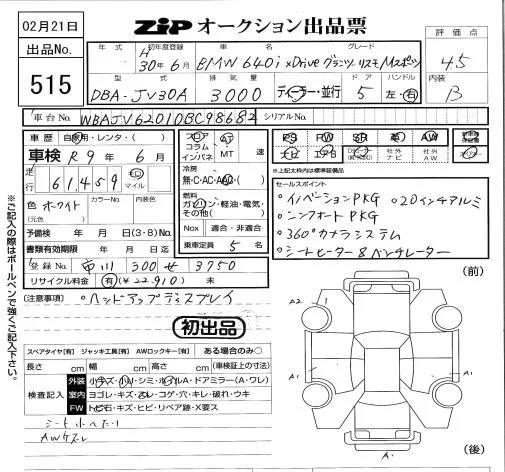 02月21日
ZIP オークション出品票
出品No.
515
年式 初年度登録 車名 グレード
H 30年6月 BMW 640i xDrive グランツーリスモ Mスポーツ
型式 排気量 ドア ハンドル
DBA-JV30A 3000 ディーラー・並行 5 左・右
評価点
4.5
内装
B
車台No. WBAJV62010BC98682 シリアルNo.
車歴 自家用・レンタ・( )
車検 R9年6月
走行 61,459 キロ マイル
色 ホワイト カラーNo. 内装色
(元色)
予備検 年 月 日(3・8)No.
書類有効期限 年 月 日迄
登録No. 市川 300 せ 3750
リサイクル料金 有(¥22,910) 未
フロア コラム インパネ AT MT 速
冷房
無・C・AC・AAC・( )
燃料
ガソリン・軽油・電気・その他( )
Nox 適合・非適合
乗車定員 5 名
PS PW SR 革 AW
ナビ エアB 社外ナビ 社外AW
※上記太枠内は標準装備品
セールスポイント
・イノベーションPKG ・20インチアルミ
・コンフォートPKG
・360°カメラシステム
・シートヒーター&ベンチレーター
(注意事項) ・ヘッドアップディスプレイ
初出品
スペアタイヤ[有] ジャッキ工具[有] AWロックキー[有] ある場合のみ○
長さ cm 幅 cm 高さ cm (車検証上の寸法)
検査記入
外装 小キズ・小U・シミ・ルーフA・ドアミラー(A・ワレ)
室内 ヨゴレ・キズ・スレ・コゲ・穴・キレ・破れ・ウキ
FW トビ石・キズ・ヒビ・リペア跡・X要ス
シートへたり
AWキズ
※ご記入の際はボールペンで強くご記入下さい。
(前)
A2 1
A1 A1
A1
(後)